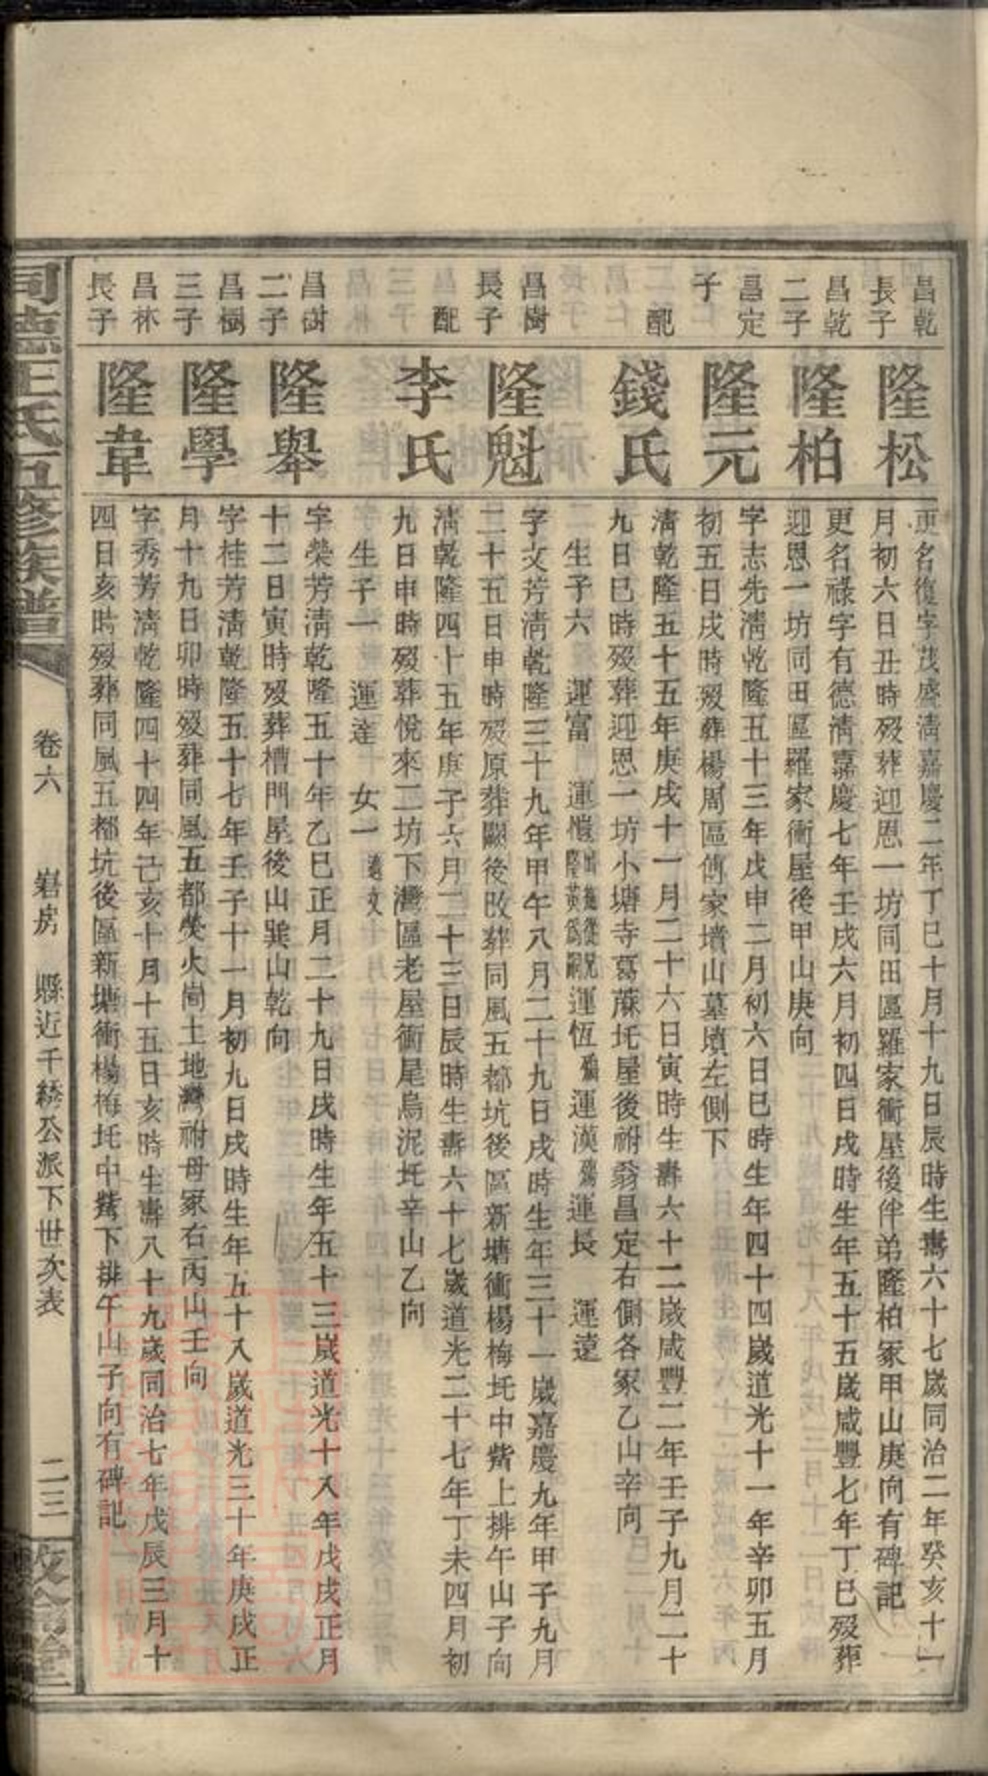 昌乾長子
隆松
更名復字茂盛淸嘉慶二年丁巳十月十九日辰時生壽六十七歲同治二年癸亥十一
月初六日丑時歿葬迎恩一坊同田區羅家衝屋後伴弟隆柏冢甲山庚向有碑記
昌乾二子
隆柏
更名祿字有德淸嘉慶七年壬戌六月初四日戌時生年五十五歲咸豐七年丁巳歿葬
迎恩一坊同田區羅家衝屋後甲山庚向
昌定子
隆元
字志先淸乾隆五十三年戊申二月初六日巳時生年四十四歲道光十一年辛卯五月
初五日戌時歿葬楊周區傅家墳山墓墳左側下
配
錢氏
淸乾隆五十五年庚戌十一月二十六日寅時生壽六十二歲咸豐二年壬子九月二十
九日巳時歿葬迎恩一坊小塘寺葛蔴圫屋後祔翁昌定右側各冢乙山辛向
生子六 運富 運愷 運恆殤 運漢殤 運長 運遠
昌樹長子
隆魁
字文芳淸乾隆三十九年甲午八月二十九日戌時生年三十一歲嘉慶九年甲子九月
二十五日申時歿原葬闕後改葬同風五都坑後區新塘衝楊梅圫中觜上排午山子向
配
李氏
淸乾隆四十五年庚子六月二十三日辰時生壽六十七歲道光二十七年丁未四月初
九日申時歿葬悅來二坊下灣區老屋衝尾烏泥圫辛山乙向
生子一 運達 女一適文
昌樹二子
隆舉
字榮芳淸乾隆五十年乙巳正月二十九日戌時生年五十三歲道光十八年戊戌正月
十二日寅時歿葬槽門屋後山巽山乾向
昌樹三子
隆學
字桂芳淸乾隆五十七年壬子十一月初九日戌時生年五十八歲道光三十年庚戌正
月十九日卯時歿葬同風五都熒火崗土地灣祔母冢右丙山壬向
昌林長子
隆韋
字秀芳淸乾隆四十四年己亥十月十五日亥時生壽八十九歲同治七年戊辰三月十
四日亥時歿葬同風五都坑後區新塘衝楊梅圫中觜下排午山子向有碑記
王氏五修族譜
卷六
岩房 縣近千繡公派下世次表
二三